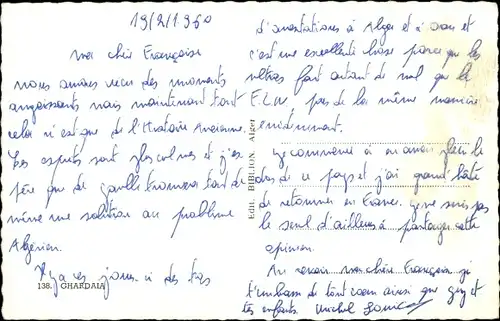 19/2/1960
ma chère Françoise
nous avons vécu des moments
angoissants mais maintenant tout
cela n'est que de l'histoire Ancienne
Les esprits sont plus calmes et j'es
père que de gaulle trouvera tout de
même une solution au problème
Algérien.
Il y a ces jours-ci des tas
138. GHARDAIA
d'arrestations à Alger et à Oran et
c'est une excellente chose parce que les
ultras font autant de mal que le
F.L.N. pas de la même manière
évidemment.
Je commence à en avoir plein le
dos de ce pays et j'ai grand hâte
de retourner en France. Je ne suis pas
le seul d'ailleurs à partager cette
opinion.
Au revoir ma chère Françoise je
t'embrasse de tout coeur ainsi que guy et
tes enfants. Michel
Edit. BIBLION, Alger